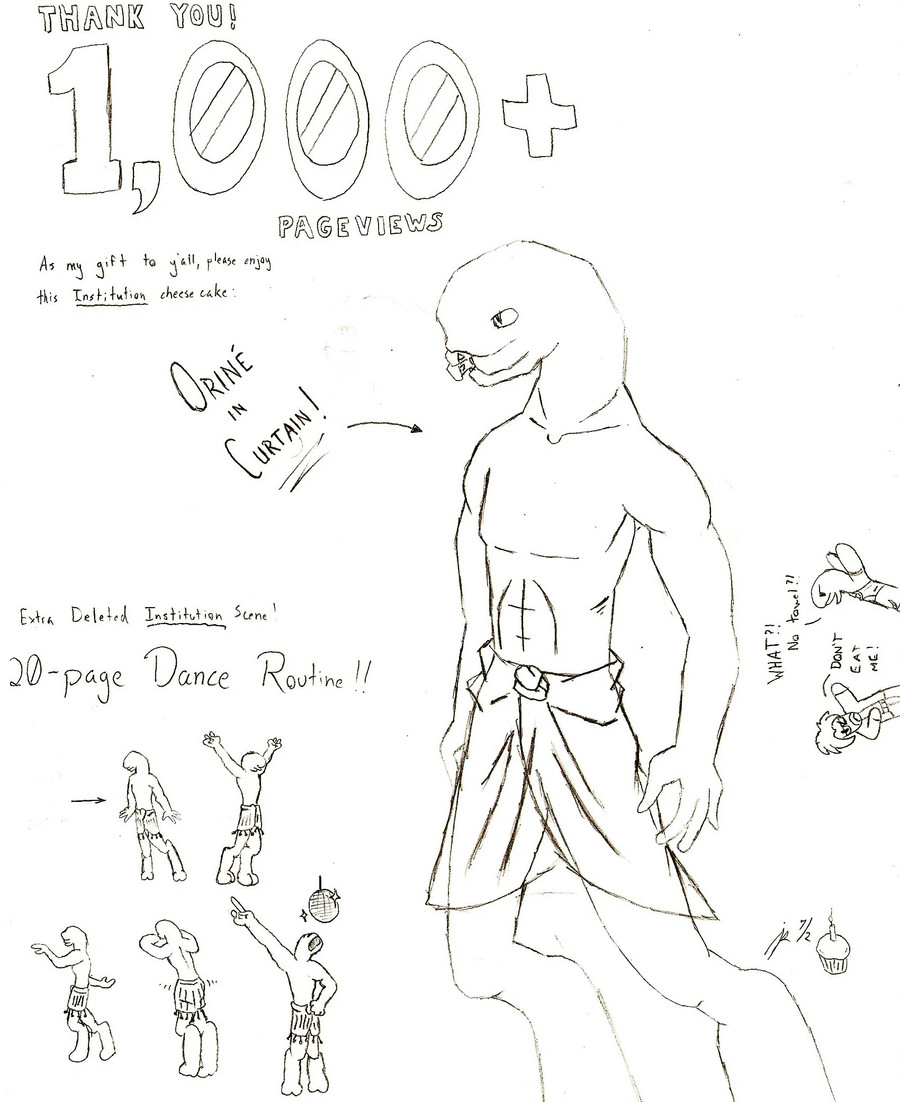 THANK YOU!
1,000+
PAGEVIEWS
As my gift to y'all, please enjoy
this Institution cheesecake:
ORINÉ
IN
CURTAIN!
WHAT?!
No towel?!
DON'T
EAT
ME!
Extra Deleted Institution Scene!
20-page Dance Routine!!
7/2